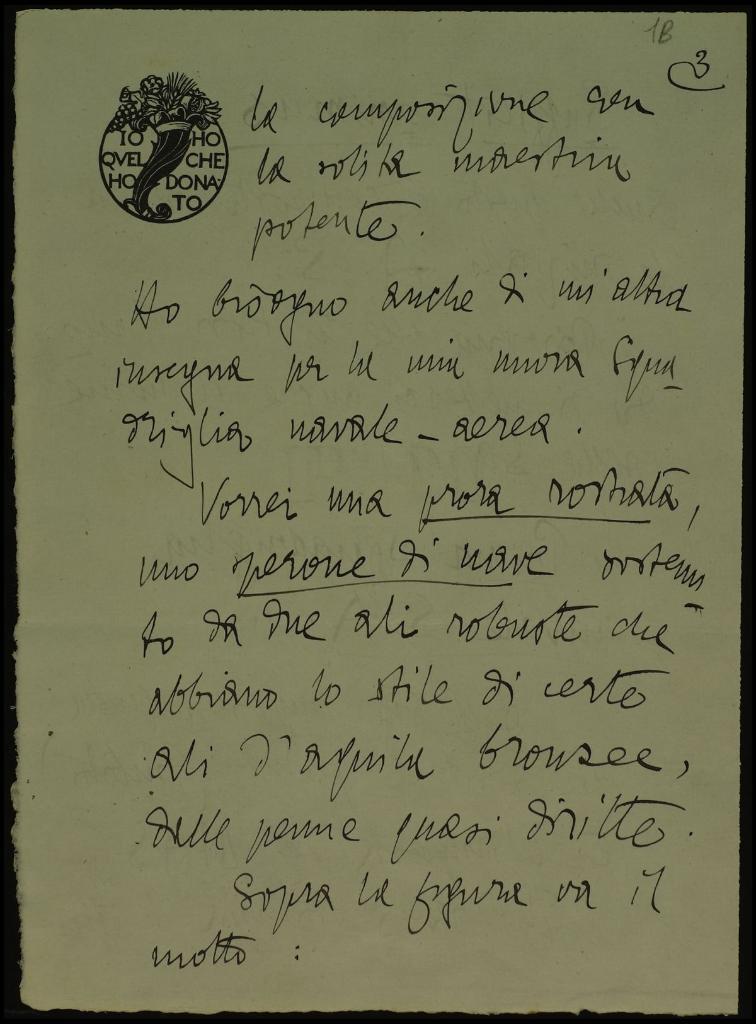 1B
3
IO HO
QVEL CHE
HO DONA-
TO
la composizione con
la solita maestria
potente.
Ho bisogno anche di un'altra
insegna per la mia nuova Squa_
driglia navale_aerea.
Vorrei una prora rostrata,
uno sperone di nave sostenu_
to da due ali robuste che
abbiano lo stile di certe
ali d'aquila bronzee,
dalle penne quasi diritte.
Sopra la figura va il
motto :